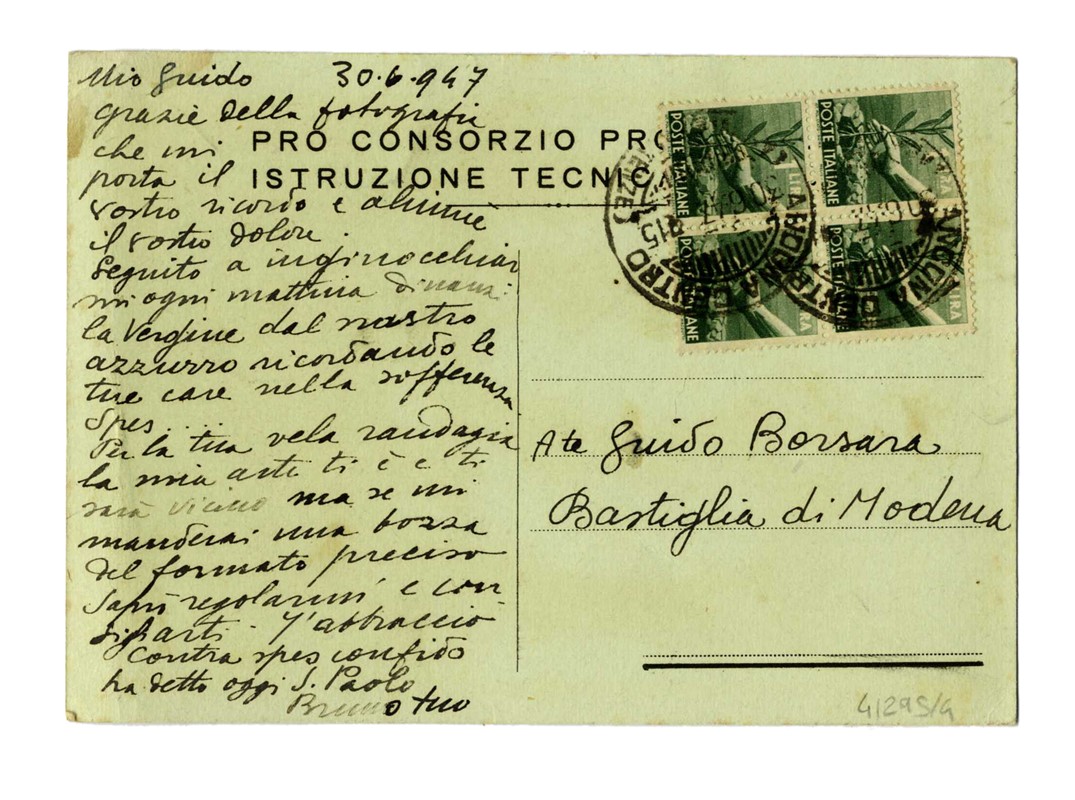 Mio Guido 30.6.947
grazie della fotografia
che mi
porta il
vostro ricordo e ahimè
il vostro dolore.
Seguito a inginocchiar
mi ogni mattina dinanzi
la Vergine dal nastro
azzurro ricordando le
tue care nella sofferenza
Spes...
Per la tua vela randagia
la mia arte ti è e ti
sarà vicino ma se mi
manderai una bozza
del formato preciso
saprò regolarmi e con
sigliarti. T'abbraccio
Contra spes confido
ha detto oggi S. Paolo
Bruno tuo
PRO CONSORZIO PRO
ISTRUZIONE TECNIC
POSTE ITALIANE
LIRA
POSTE ITALIANE
POSTE ITALIANE
LIRA
POSTE ITALIANE
LIRA
A te Guido Borsara
Bastiglia di Modena
41295/4